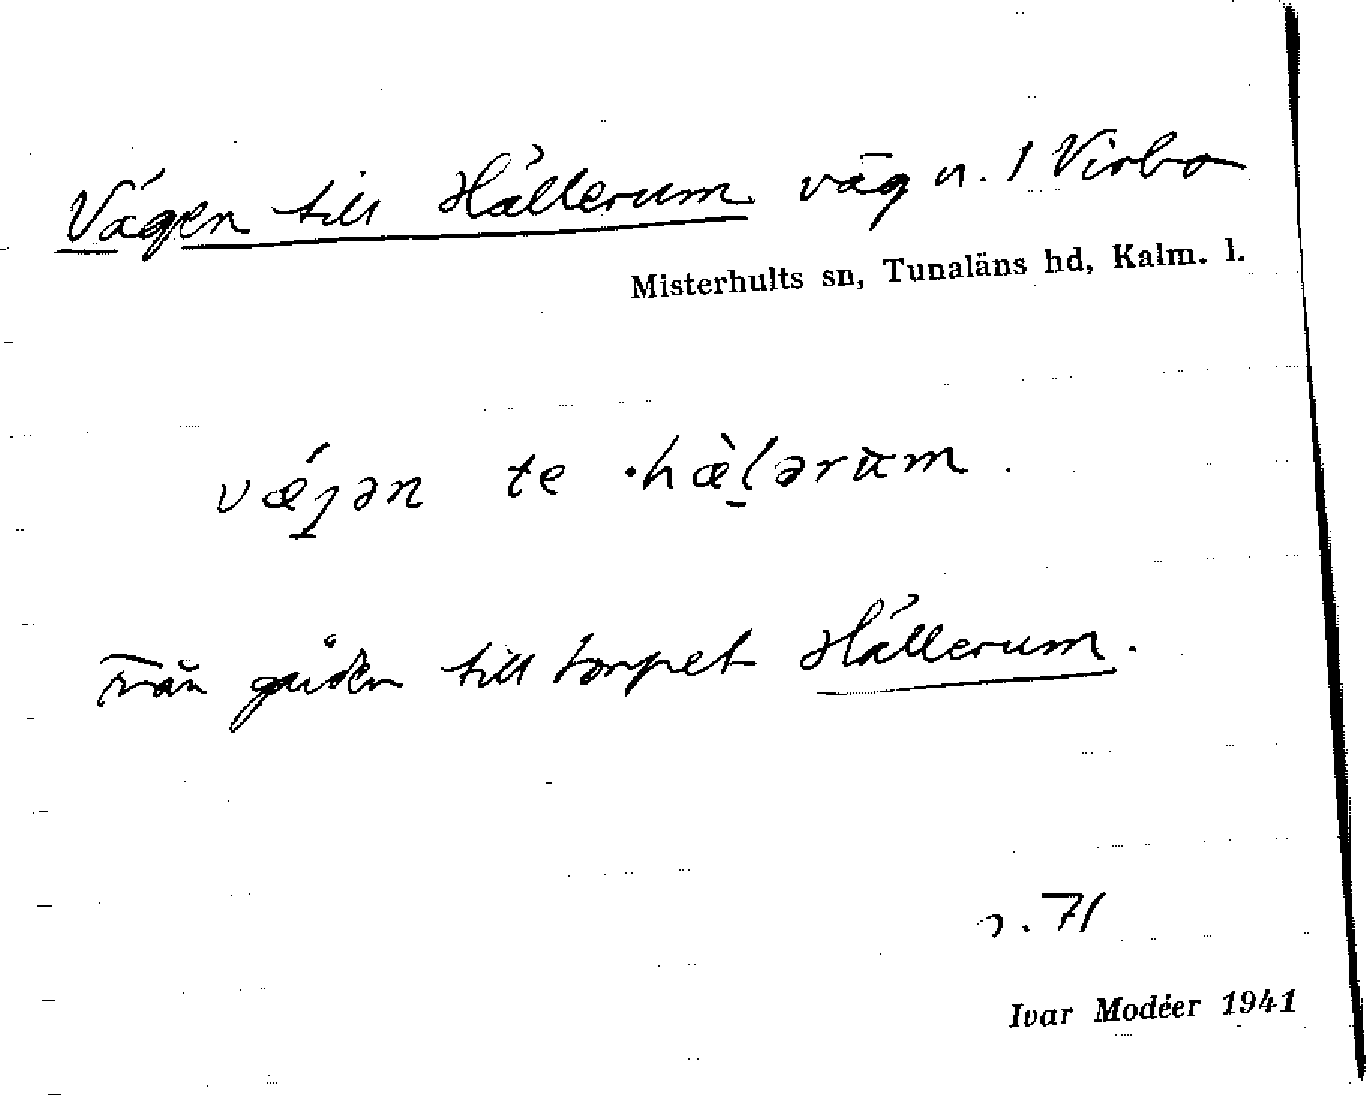 Vägen till Hällerum väg n. / Virbo
Misterhults sn, Tunaläns hd, Kalm. l.
vǽȷən te ·hæ̀lərum.
Från gården till torpet Hällerum.
s. 71
Ivar Modéer 1941